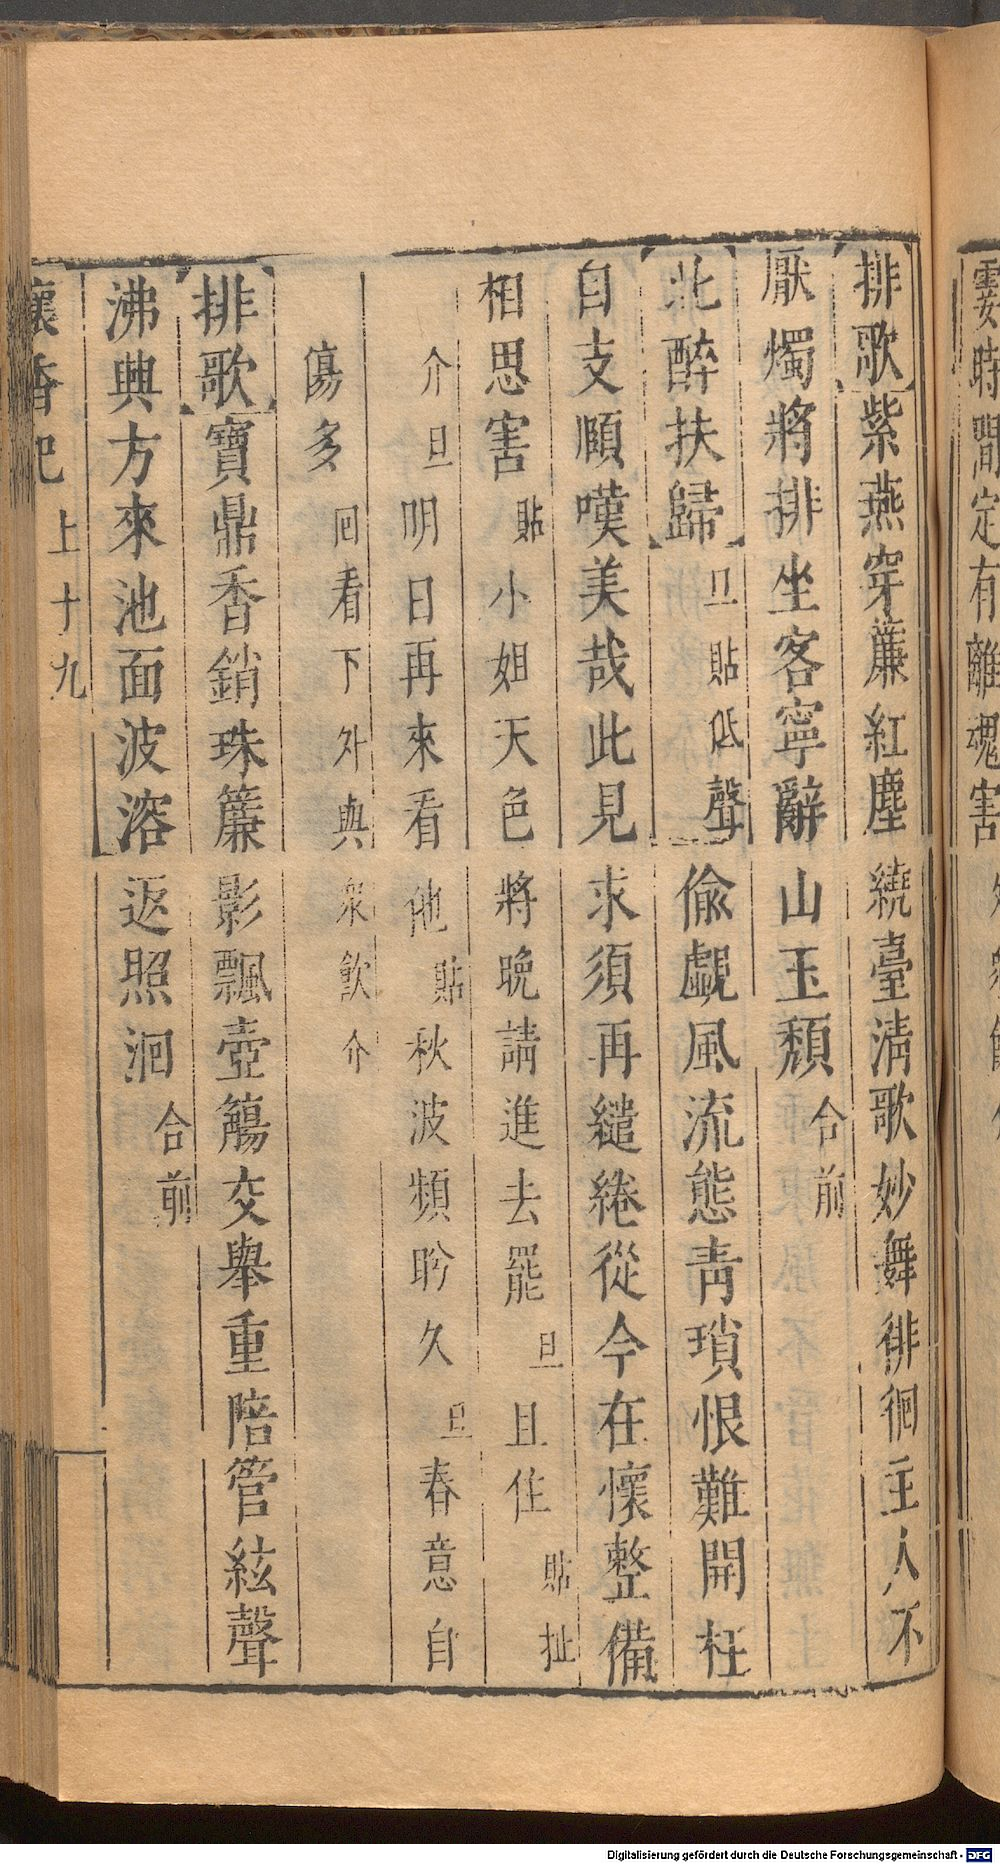 霎時間定有離魂害
排歌紫燕穿簾紅塵繞臺清歌妙舞徘徊主人不
厭燭將排坐客寧辭山玉頹合前
北醉扶歸旦貼低聲偸覷風流態靑瑣恨難開枉
自支頤嘆美哉此見求須再繾綣從今在懷整備
相思害貼小姐天色將晚請進去罷旦且住貼扯
介旦明日再來看他貼秋波頻盻久旦春意自
傷多回看下外與衆飮介
排歌寶鼎香銷珠簾影飄壺觴交舉重陪管絃聲
沸興方來池面波溶返照洄合前
懷香記 上十九
Digitalisierung gefördert durch die Deutsche Forschungsgemeinschaft - DFG